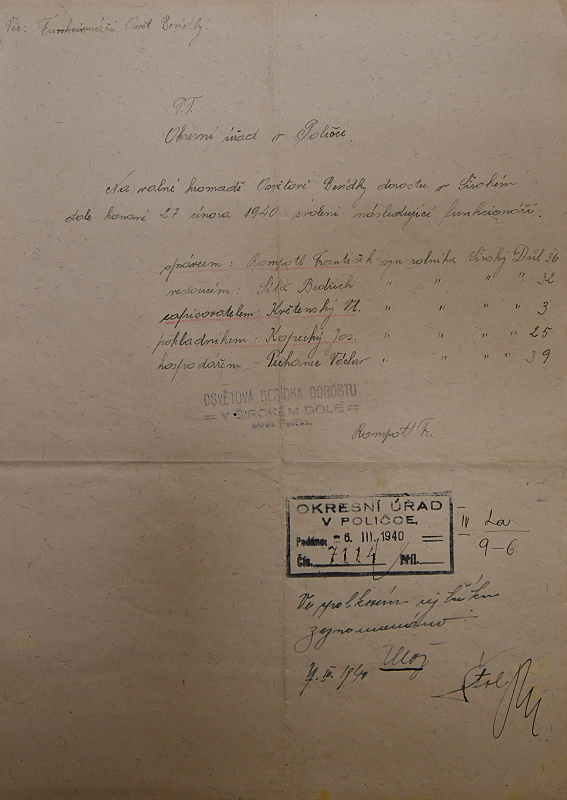 Věc: Funkcionářů Osvět Besídky.
P.T.
Okresní úřad v Poličce.
Na valné hromadě Osvětové Besídky dorostu v Širokém
dole konané 27 února 1940 zvoleni následující funkcionáři.
správcem: Rompotl František syn rolníka Široký Důl 36
vedoucím: Silá Bedřich " " " " 32
zapisovatelem: Květenský Vl. " " " " 3
pokladníkem: Kopecký Jos. " " " " 25
hospodářem Pechanec Václav " " " " 39
OSVĚTOVÁ BESÍDKA DOROSTU
= V ŠIROKÉM DOLE =
okres Polička.
Rompotl Fr.
OKRESNÍ ÚŘAD
V POLIČCE.
Podáno: - 6. III. 1940
Čís. 7114 Příl.
IV
9-6
Ve spolkovém rejstříku
zaznamenáno
Ulož
7. III. 1940